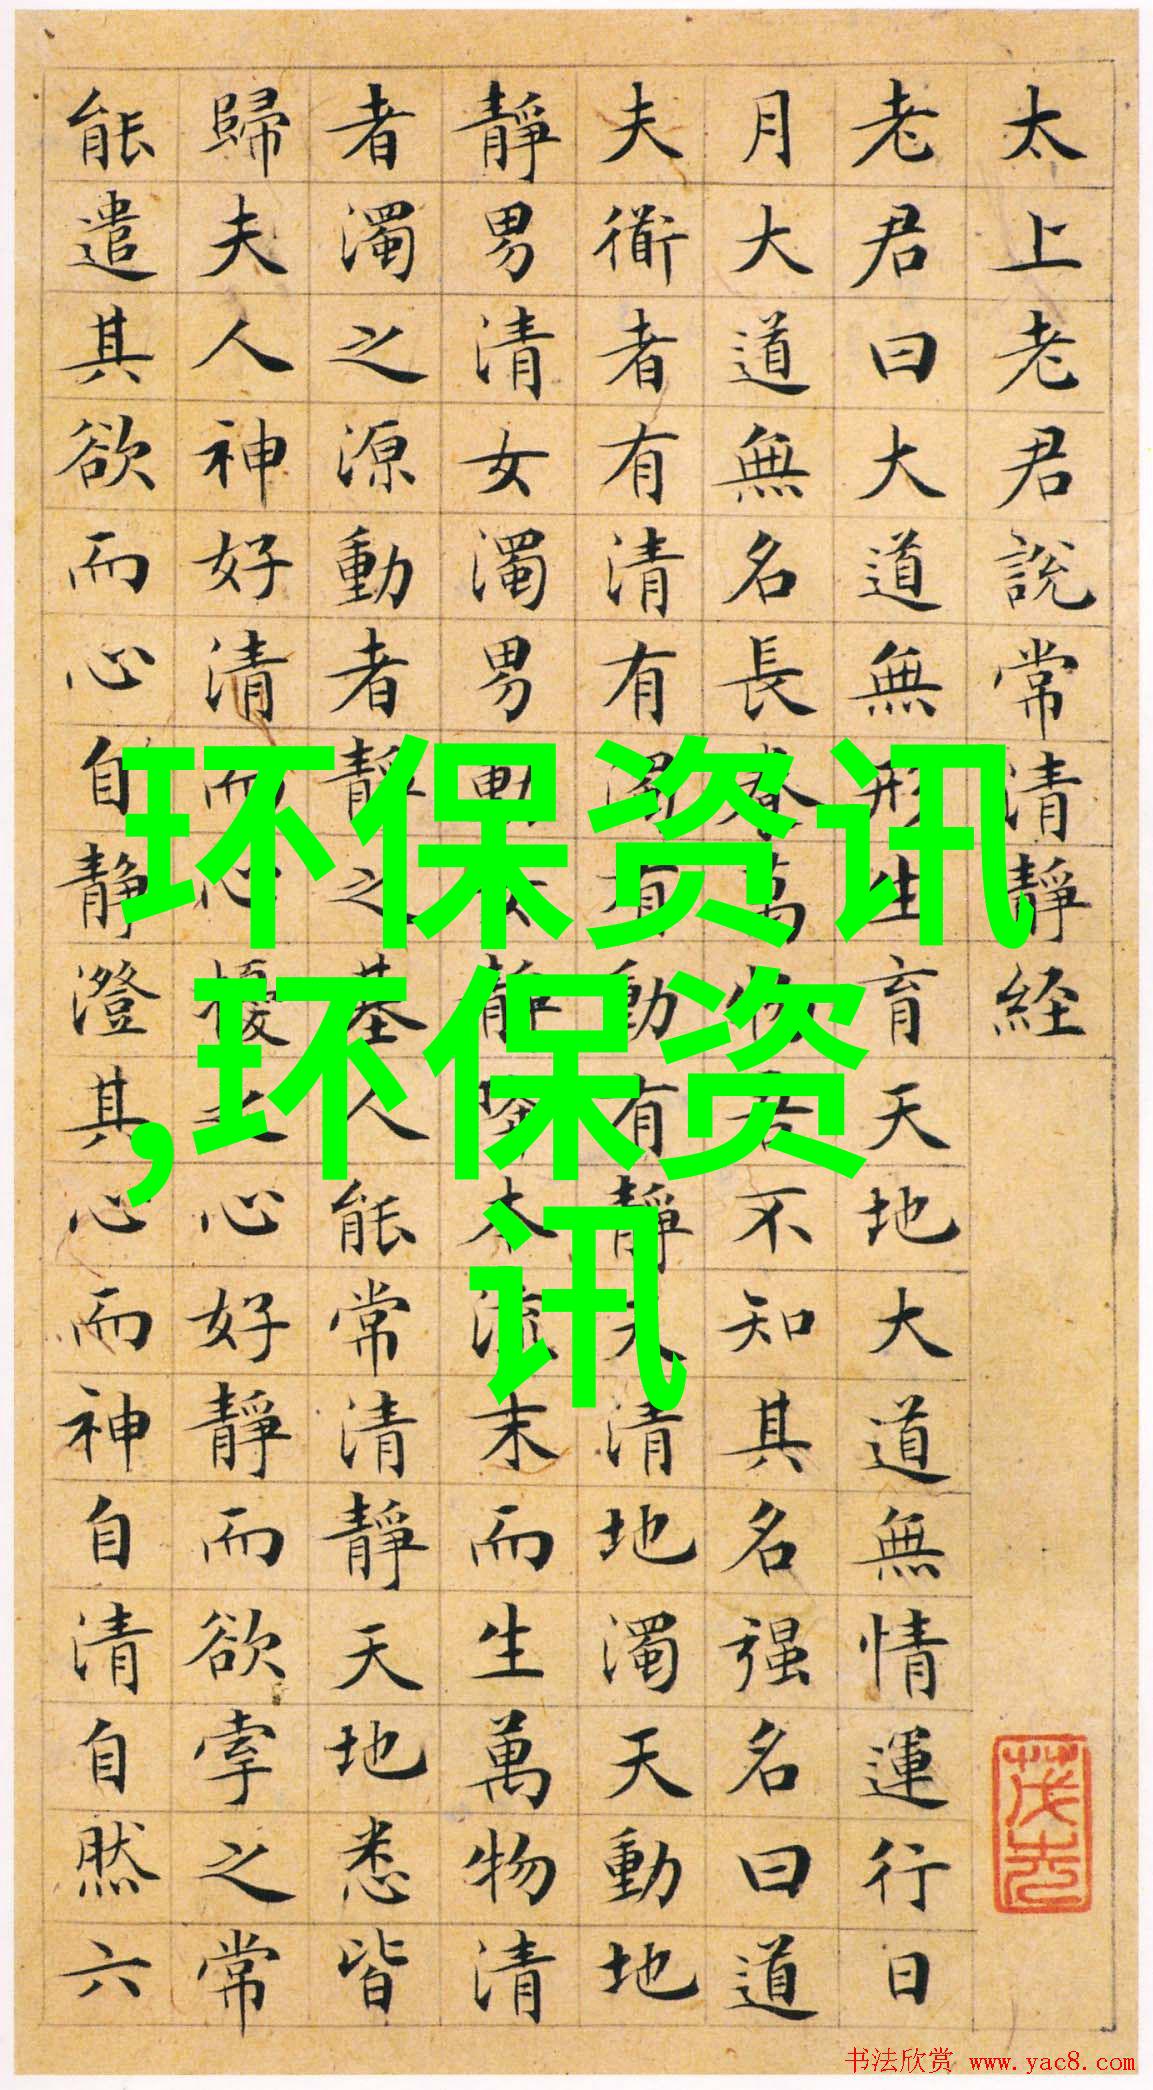 太上老君説常清靜経
老君曰大道無形生育天地大道無情運行日
月大道無名長養萬物吾不知其名强名曰道
夫衜者有清有濁有動有靜天清地濁天動地
靜男清女濁男動女靜降本流末而生萬物清
者濁之源動者靜之基人能常清靜天地悉皆
歸夫人神好清而心擾之心好靜而欲牽之常
能遣其欲而心自靜澄其心而神自清自然六
环保资讯
,环保资
讯
书法欣赏 www.yac8.com